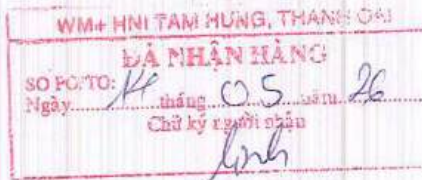 WM+ HNI TAM HUNG, THANH OAI
ĐÃ NHẬN HÀNG
SO PO/TO:
Ngày 14 tháng 05 năm 26
Chữ ký người nhận
Linh